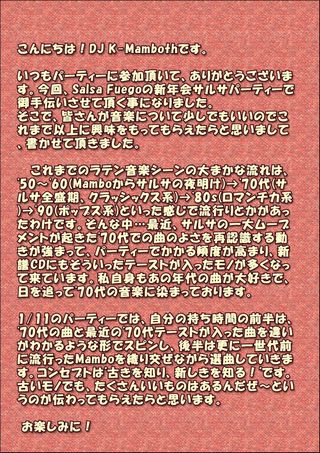 こんにちは！DJ K-Mambothです。
いつもパーティーに参加頂いて、ありがとうございま
す。今回、Salsa Fuegoの新年会サルサパーティーで
御手伝いさせて頂く事になりました。
そこで、皆さんが音楽について少しでもいいのでこ
れまで以上に興味をもってもらえたらと思いまして
、書かせて頂きました。
これまでのラテン音楽シーンの大まかな流れは、
'50～'60(Mamboからサルサの夜明け)→70代(サ
ルサ全盛期、クラッシックス系)→80s(ロマンチカ系
)→90(ポップス系)といった感じで流行りとかがあっ
たわけです。そんな中…最近、サルサの一大ムーブ
メントが起きた'70代での曲のよさを再認識する動
きが強まって、パーティーでかかる頻度が高まり、新
譜CDにもどういったテーストが入ったモノが多くなっ
て来ています。私自身もあの年代の曲が大好きで、
日を追って'70代の音楽に染まっております。
1/11のパーティーでは、自分の持ち時間の前半は、
'70代の曲と最近の'70代テーストが入った曲を違い
がわかるような形でスピンし、後半は更に一世代前
に流行ったMamboを織り交ぜながら選曲していきま
す。コンセプトは"古きを知り、新しきを知る！"です。
古いモノでも、たくさんいいものはあるんだぜ～とい
うのが伝わってもらえたらと思います。
お楽しみに！